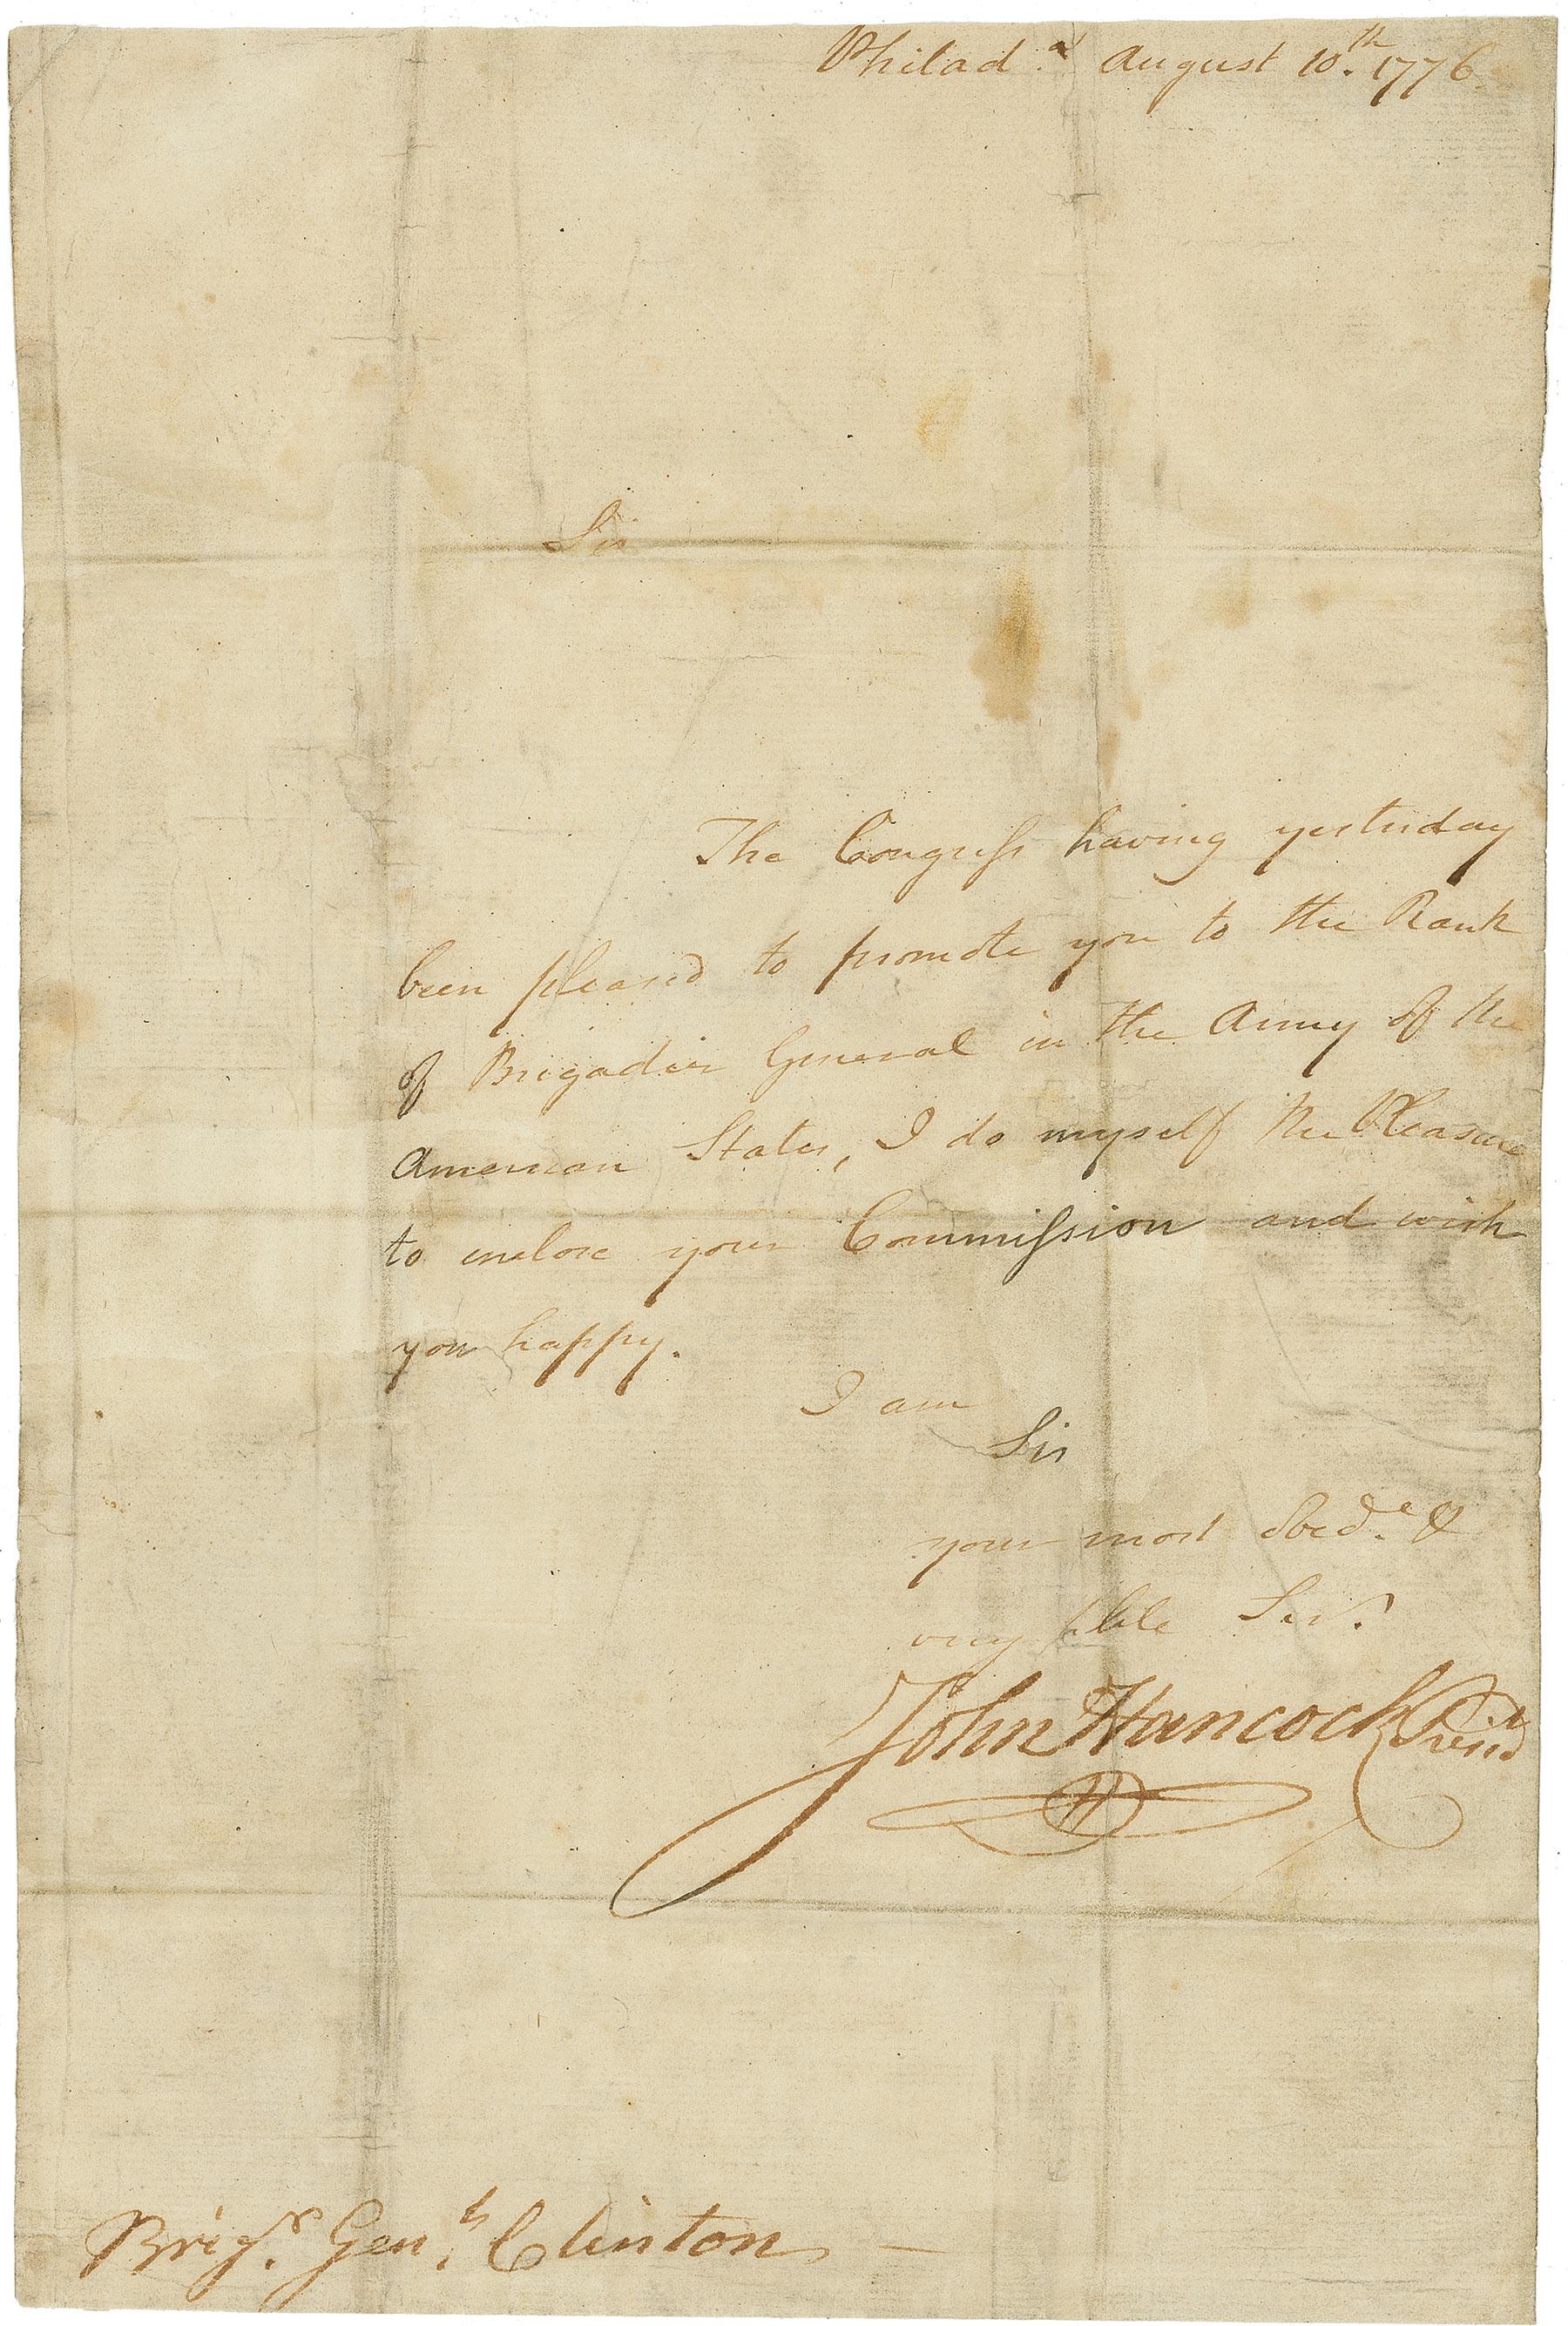 Philad.ᵃ August 10.ᵗʰ 1776.
Sir
The Congreſs having yesterday
been pleased to promote you to the Rank
of Brigadier General in the Army of the
American States, I do myself the Pleasure
to inclose your Commiſsion and wish
you happy.
I am
Sir
your most Obed.ᵉ &
very hble Ser.ᵗ
John Hancock Presid.ᵗ
H
Brig.ʳ Gen.ˡ Clinton